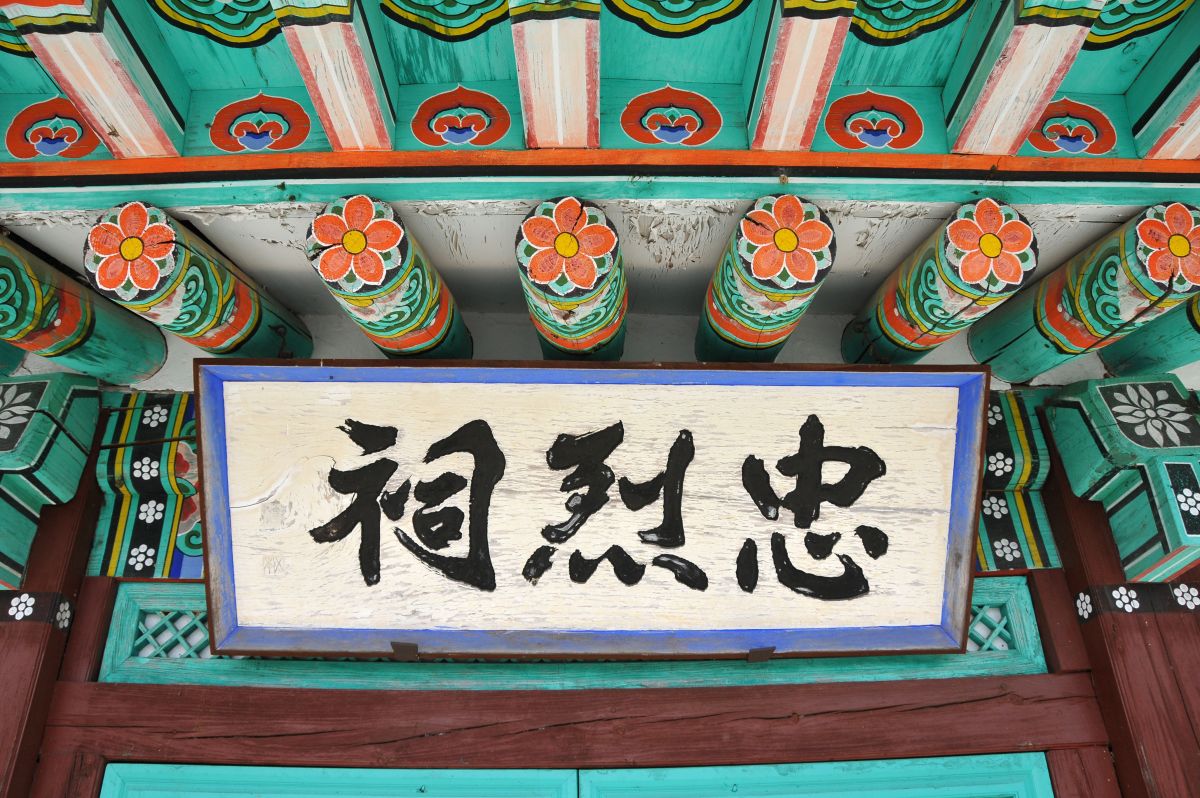 忠烈祠